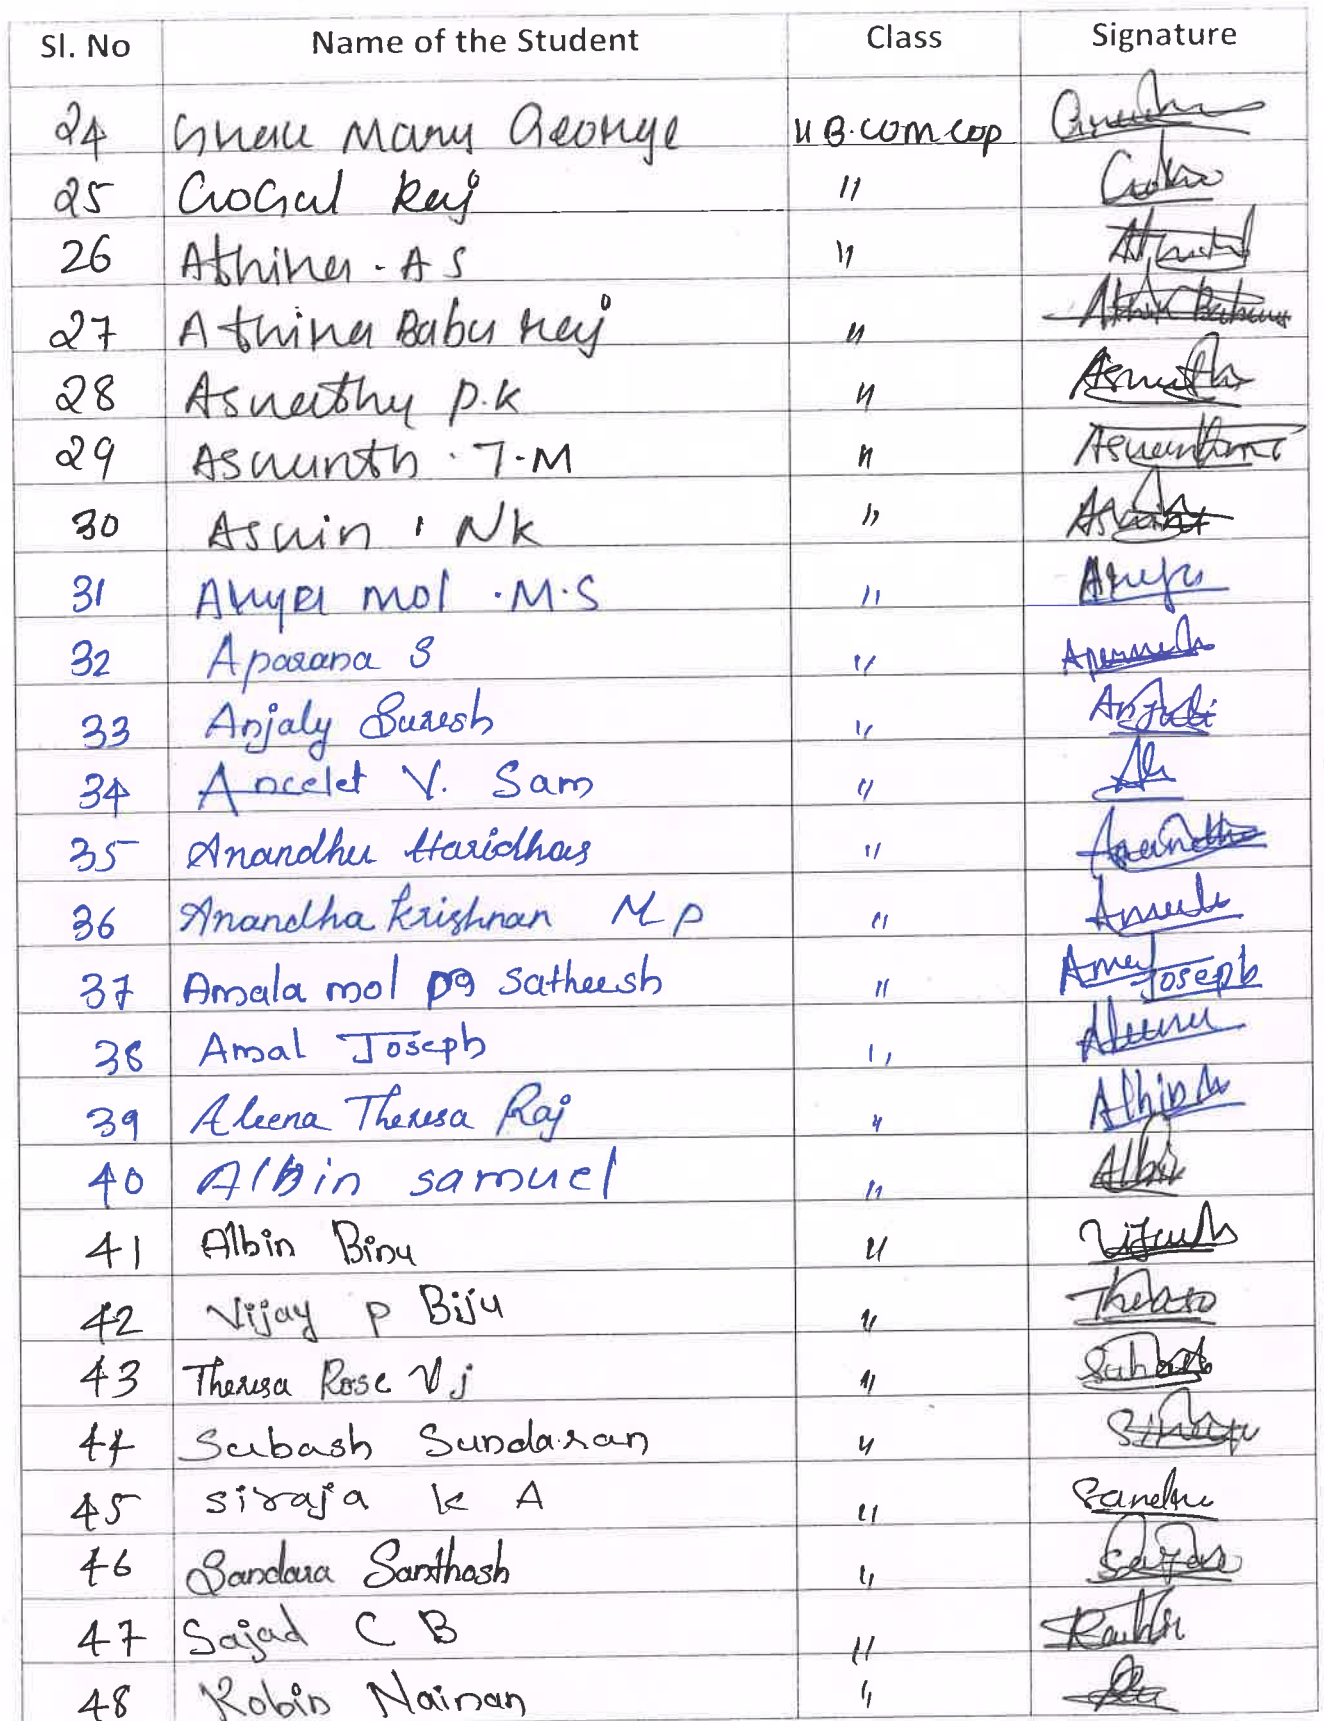 Sl. No Name of the Student Class Signature
24 Mary George II B.com cop
25 Gogul Raj "
26 Athina . A S "
27 Athina Babu Raj "
28 Aswathy P.K "
29 Aswanth . T.M "
30 Aswin . NK "
31 Anya mol .M.S "
32 Aparana S "
33 Anjaly Suresh "
34 Ancelet V. Sam "
35 Anandhu Haridhas "
36 Anandha Krishnan M P "
37 Amala mol Satheesh " Amal Joseph
38 Amal Joseph "
39 Aleena Theresa Raj "
40 Albin samuel " Albin
41 Albin Binu "
42 Vijay P Biju "
43 Theresa Rose V j "
44 Subash Sundaran "
45 siraja k A "
46 Sandara Santhosh "
47 Sajad C B "
48 Robin Nainan "